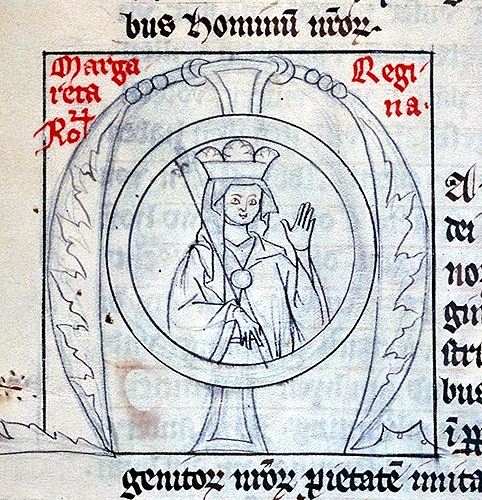 bus hominū nr̄or.
Marga
reta
Ro
Regi
na.
A
dei
nor
gin
stri
bus
genitor nr̄or pietatē imita